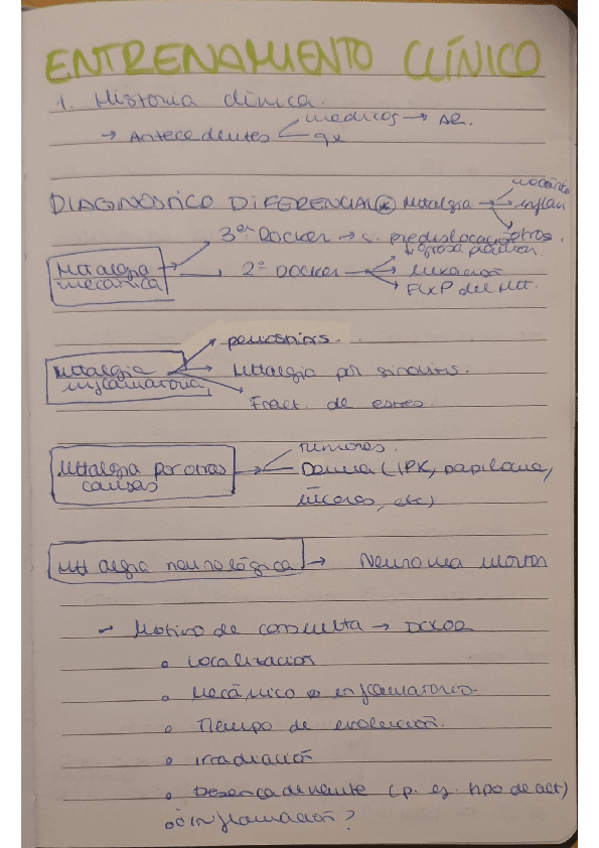 ENTRENAMIENTO CLÍNICO
1. Historia clínica.
→ Antecedentes médicos → AR.
qx
DIAGNOSTICO DIFERENCIAL Mttalgia → mecánica
inflam
otros.
Mttalgia mecánica
3er Docker → s. predislocación
2º Docker → grasa plantar
Luxación
FxP del Mtt.
Mttalgia inflamatoria,
periostitis.
Mttalgia por sinovitis.
Fract. de estrés.
Mttalgia por otras causas
Tumores.
Derma (IPK, papiloma,
úlceras, etc)
Mttalgia neurológica → Neuroma morton
- Motivo de consulta → DOLOR
o Localización
o Mecánico o inflamatorio.
o Tiempo de evolución.
o Irradiación
o Desencadenante (p. ej. tipo de act)
o ¿inflamación?